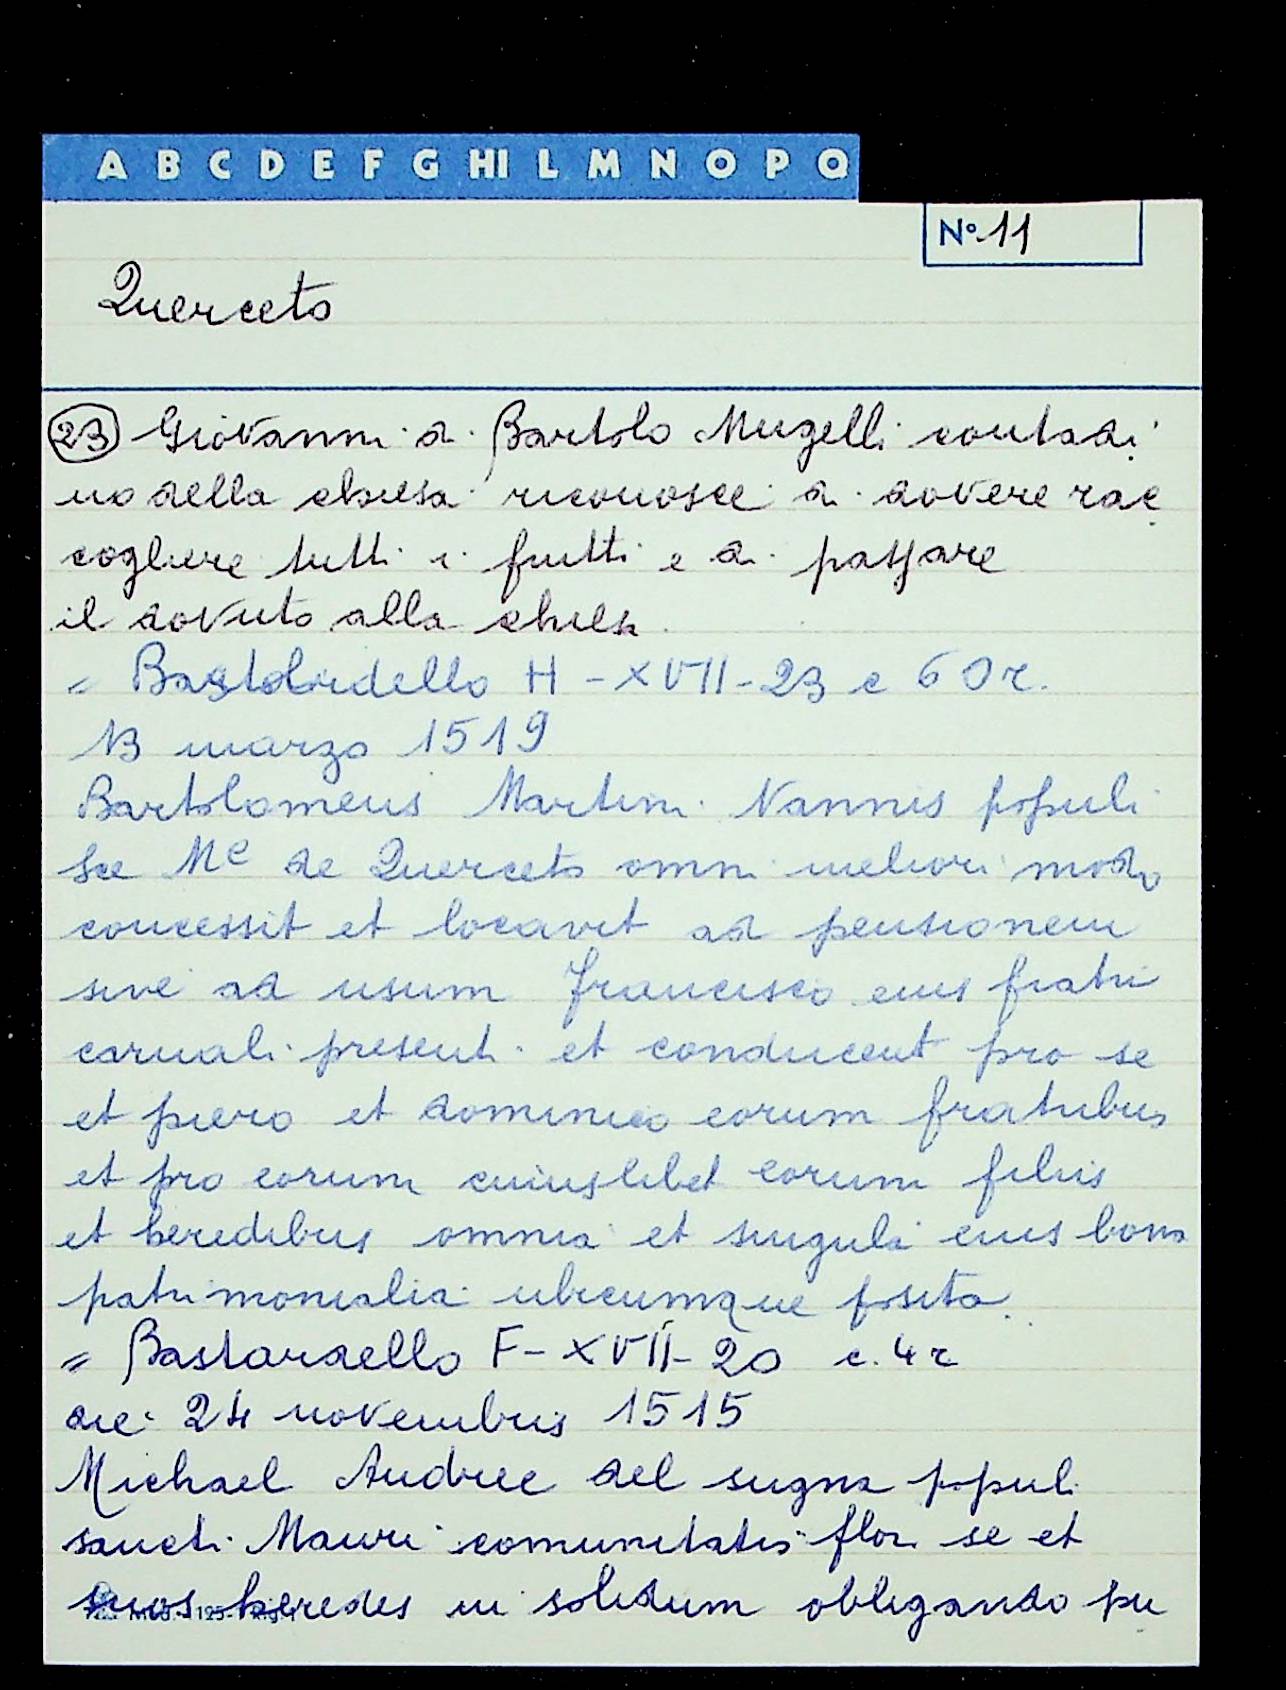 A B C D E F G HI L M N O P Q
N° 11
Querceto
23 Giovanni di Bartolo Mugelli contadi
no della chiesa riconosce di dovere rac
cogliere tutti i frutti e di passare
il dovuto alla chiesa
= H - XVII - 23 c 60 r.
13 marzo 1519
Bartolomeus Martini Nannis populi
Sce Me de Querceto omni meliori modo
concessit et locavit ad pensionem
sive ad usum Francisco eius fratri
carnali presenti et conducent pro se
et piero et dominico eorum fratribus
et pro eorum cuiuslibet eorum filiis
et heredibus omnia et singula eius bona
patrimonialia ubicumque posita.
= Bastardello F - XVII - 20 c. 4 r
die 24 novembris 1515
Michael Andree del sugna populi
sancti Mauri comunitatis flor. se et
suos heredes in solidum obligando pu